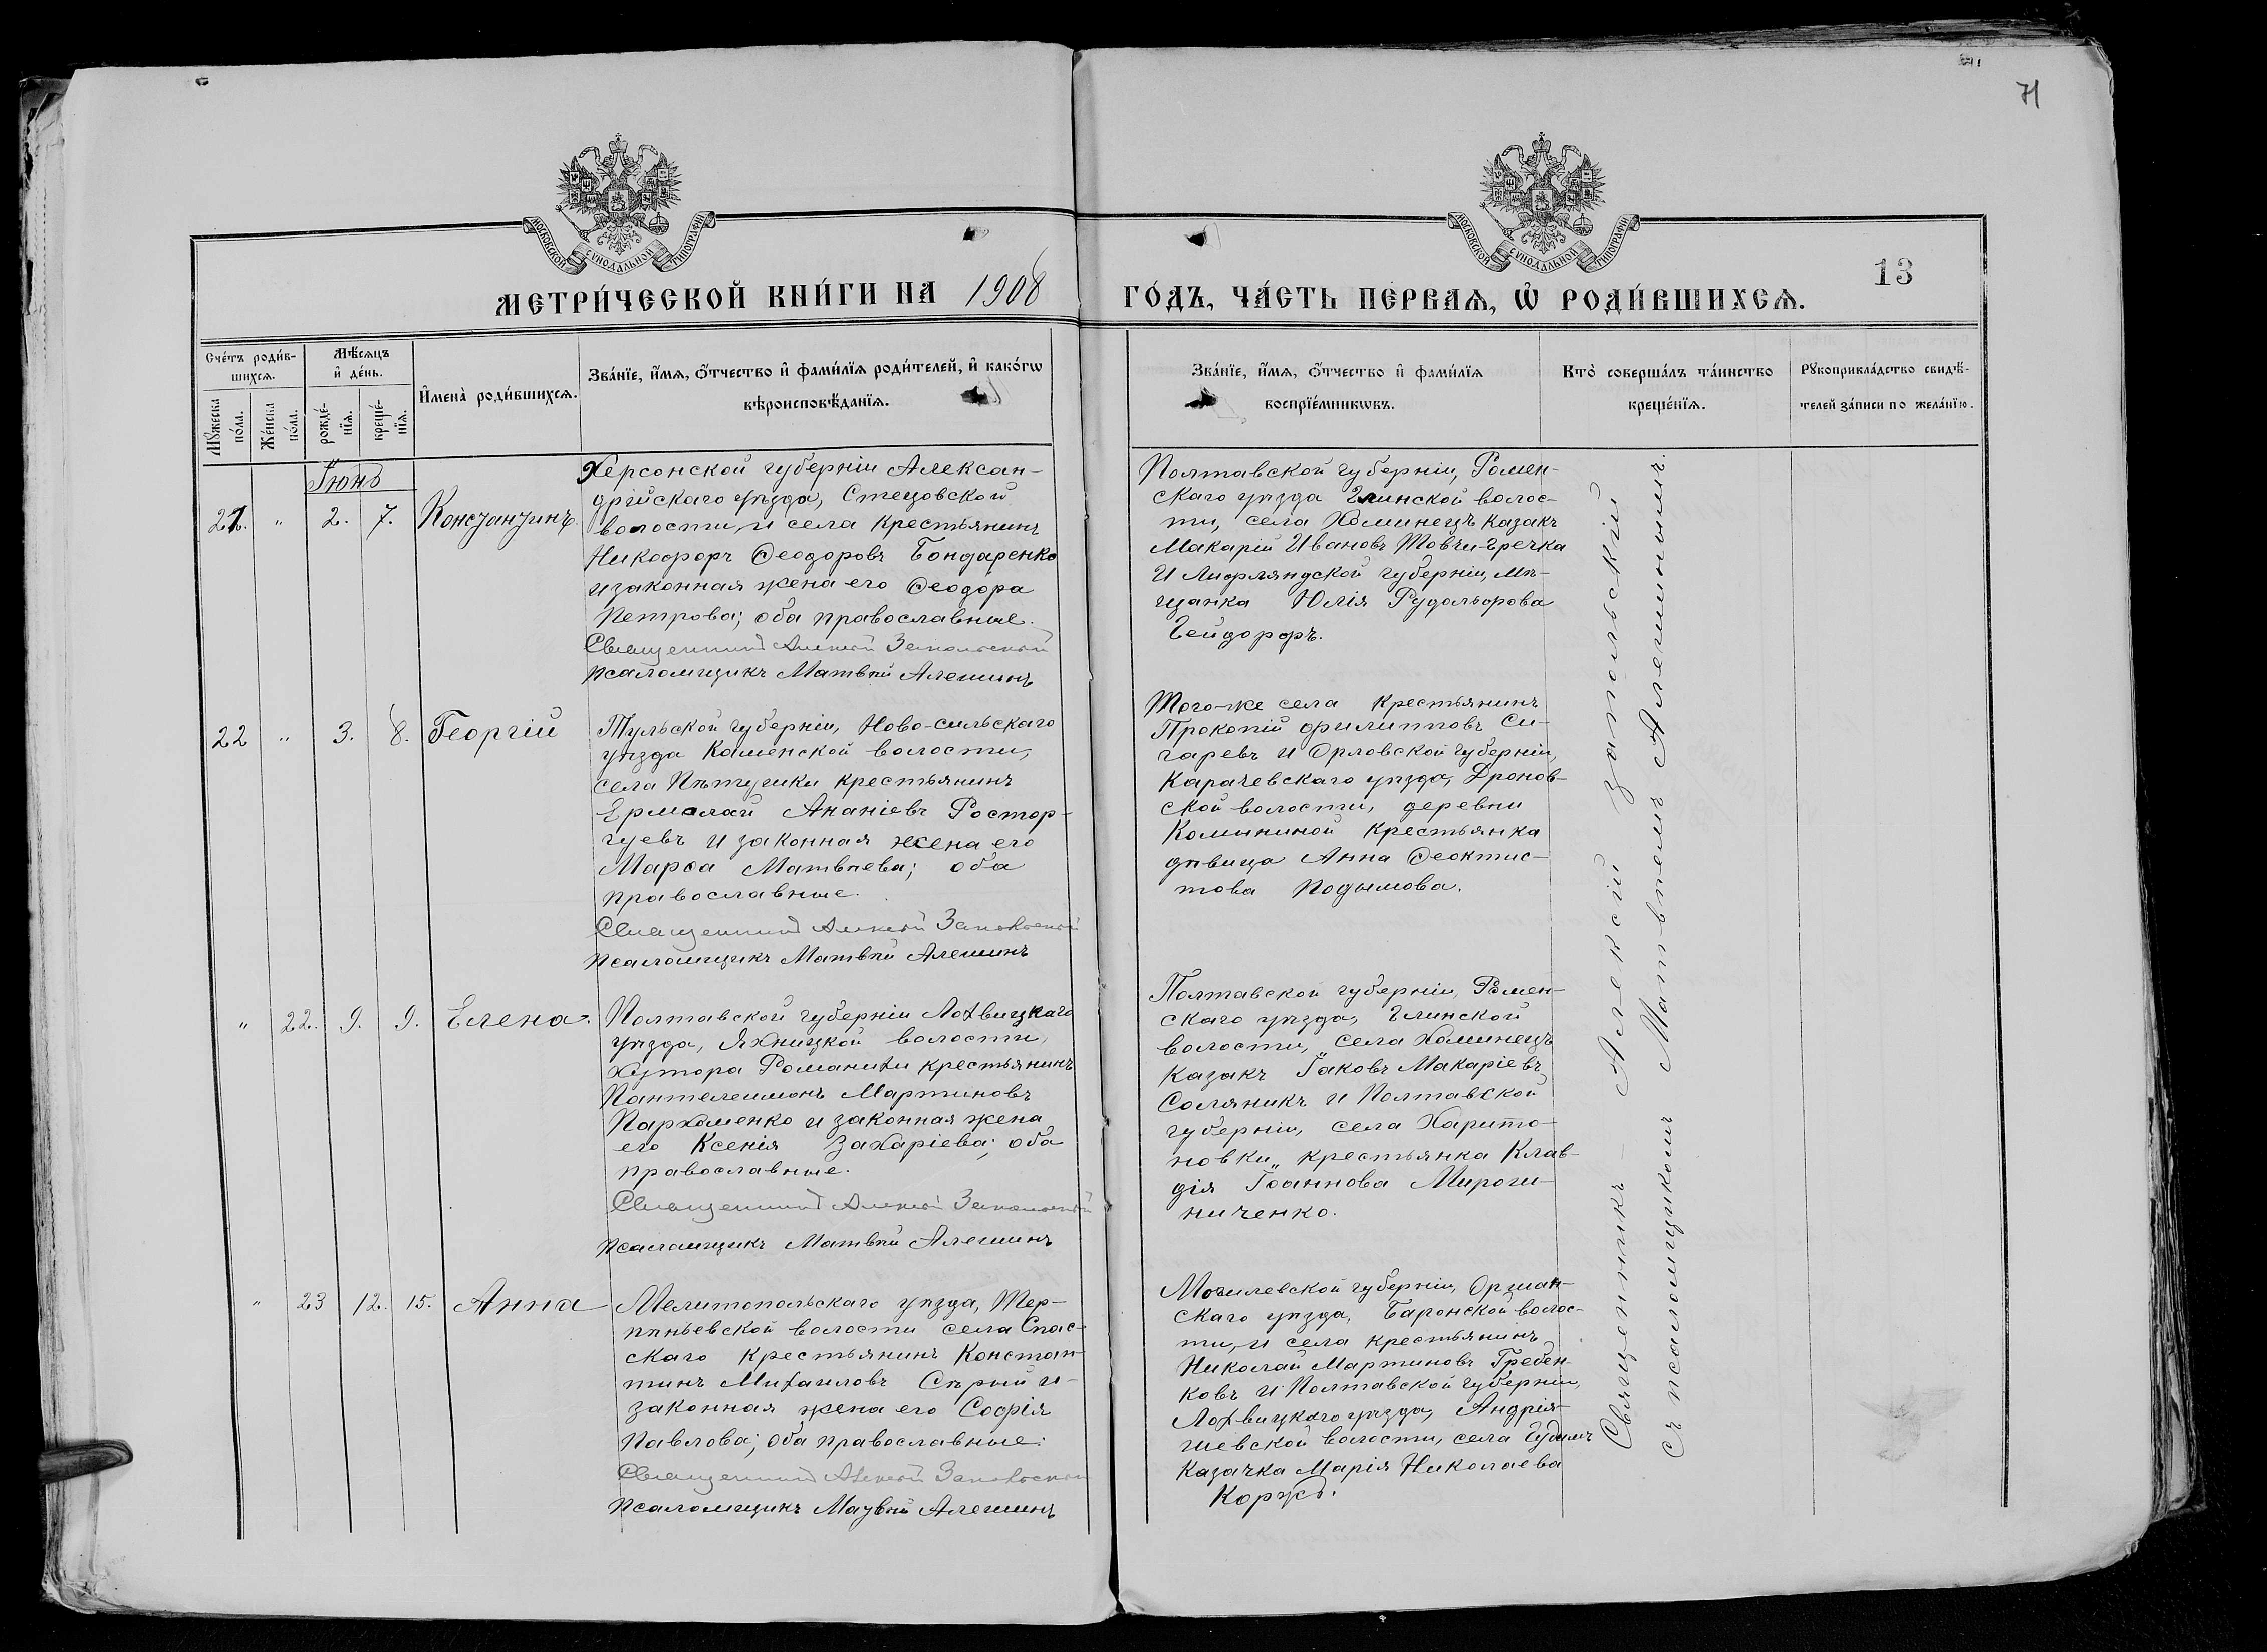 71
МОСКОВСКОЙ СѴНОДАЛЬНОЙ ТИПОГРАФІИ
МОСКОВСКОЙ СѴНОДАЛЬНОЙ ТИПОГРАФІИ
13
МЕТРИ́ЧЕСКОЙ КНИ́ГИ НА 1908
ГО́ДЪ, ЧА́СТЬ ПЕ́РВАѦ, Ѡ҆ РОДИ́ВШИХСѦ.
Сче́тъ роди́в-
шихсѧ.
Мѣ́сѧцъ
и҆ де́нь.
И҆мена̀ роди́вшихсѧ.
Зва́нїе, и҆́мѧ, ѻ҆́тчество и҆ фами́лїѧ роди́телей, и҆ како́гѡ
вѣроисповѣ́данїѧ.
Мꙋ́жеска
по́ла.
Же́нска
по́ла.
рожде́-
нїѧ.
креще́-
нїѧ.
Зва́нїе, и҆́мѧ, ѻ҆́тчество и҆ фами́лїѧ
воспрїе́мникѡвъ.
Кто̀ соверша́лъ та́инство
креще́нїѧ.
Рꙋкоприкла́дство свидѣ́-
телей за́писи по жела́нїю.
Іюнь
21. " 2. 7. Константинъ.
Херсонской губерніи Алексан-
дрійскаго уѣзда, Стецовской
волости, и села крестьянинъ
Никофоръ Ѳеодоровъ Бондаренко
и законная жена его Ѳеодора
Петрова; оба православные.
Священникъ Алексій Запольский
Псаломщикъ Матвѣй Алешинъ
Полтавской губерніи, Ромен-
скаго уѣзда Глинской волос-
ти, села Хоминецъ казакъ
Макарій Ивановъ Товчи-Гречка
И Лифляндской губерніи, Мѣ-
щанка Юлія Рудольфова
Гейдорфъ.
22 " 3. 8. Георгій
Тульской губерніи, Ново-сильскаго
уѣзда Каменской волости,
села Пѣтушки крестьянинъ
Ермолай Ананіевъ Растор-
гуевъ и законная жена его
Марѳа Матвѣева; оба
православные.
Священникъ Алексій Запольский
Псаломщикъ Матвѣй Алешинъ
Того-же села крестьянинъ
Прокопій Филипповъ Си-
гаревъ и Орловской губерніи,
Карачевскаго уѣзда, Дронов-
ской волости, деревни
Комыниной крестьянка
дѣвица Анна Ѳеоктис-
това Подымова.
" 22. 9. 9. Елена.
Полтавской губерніи Лохвицкаго
уѣзда, Яхницкой волости,
Хутора Романихи крестьянинъ
Пантелеимонъ Мартиновъ
Пархоменко и законная жена
его Ксенія Захаріева; оба
православные.
Священникъ Алексій Запольский
Псаломщикъ Матвѣй Алешинъ
Полтавской губерніи, Ромен-
скаго уѣзда, Глинской
волости, села Хоминецъ
казакъ Іаковъ Макаріевъ
Соляникъ и Полтавской
губерніи, села Харито-
новки „ крестьянка Клав-
дія Іоаннова Мироши-
ниченко.
" 23 12. 15. Анна
Мелитопольскаго уѣзда, Тер-
пѣньевской волости села Спас-
скаго крестьянинъ Констан-
тинъ Михаиловъ Сѣрый и
законная жена его Софія
Павлова; оба православные.
Священникъ Алексій Запольский
Псаломщикъ Матвѣй Алешинъ
Могилевской губерніи, Оршан-
скаго уѣзда, Баронской волос-
ти, и села крестьянинъ
Николай Мартиновъ Гребен-
ковъ и Полтавской губерніи,
Лохвицкаго уѣзда, Андрія-
шевской волости, села Гудимъ
казачка Марія Николаева
Коржъ.
Священникъ – Алексій Запольскій
съ псаломщикомъ Матвѣемъ Алешинымъ.